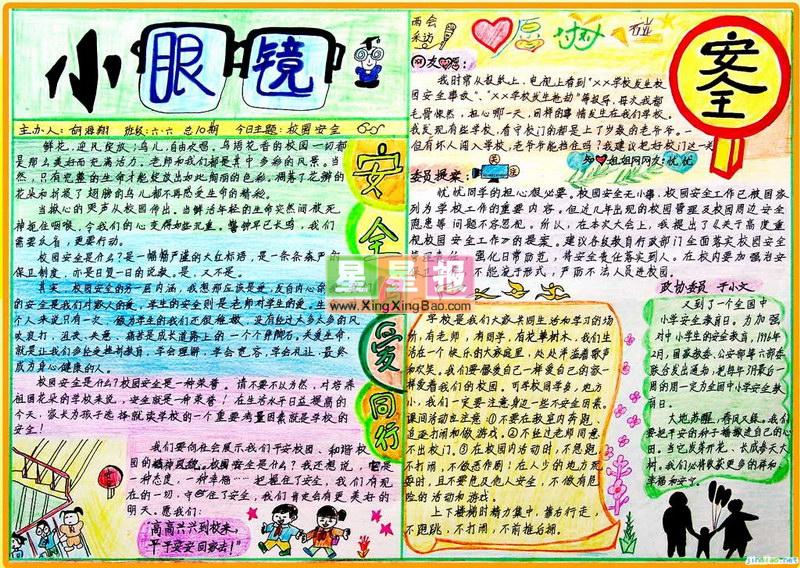 小眼镜
主办人：胡海翔 班级：六·六 总10期 今日主题：校园安全
鲜花，迎风绽放；鸟儿，自由欢唱。鸟语花香的校园一切都
是那么美好而充满活力。老师和我们都是其中多彩的风景。当
然，只有完整的生命才能绽放出如此绚丽的色彩，凋落了花瓣的
花朵和折皱了翅膀的鸟儿都不再感受生命的精彩。
当揪心的哭声从校园传出。当鲜活年轻的生命突然间被死
神扼住咽喉，令我们的心变得如此沉重。警钟早已长鸣，我们
需要多看，更要行动。
校园安全是什么？是一幅幅严谨的大红标语，是一条条严厉
保卫制度，亦是日复一日的说教。是，又不是。
其实，校园安全的另一层内涵，我想那应该是爱，发自内心
的安全是我们对家人的爱，学生的安全则是老师对学生的爱。
个人来说只有一次，做为学生的我们还很稚嫩，没有经过大多大多的风
吹衰打，沮丧、失意、痛苦是成长道路上的一个个绊脚石。关爱生命，
就是让我们多接受挫折教育，学会理解，学会宽容，学会风让，最终
成为身心健康的人。
校园安全是什么？校园安全是一种荣誉。请不要不以为然，对培养
祖国花朵的学校来说，安全就是一种荣誉！在生活水平日益提高的
今天，家长为孩子选择就读学校的一个重要考量因素就是学校的
安全！
我们要向社会展示我们平安校园、和谐校
园的精神风貌。校园安全是什么？我还想说，它是
一种态度，一种幸福……把握住了安全，我们有现
在的一切，守住了安全，我们肯定会有更美好的
明天。愿我们：
“高高兴兴到校来，
平平安安回家去！”
安全
爱
同行
两会
采访
愿
安全
网友 语：
我时常从报纸上，电视上看到“××学校发生校
园安全事故”、“××学校发生抢劫”等报导，每次我都
毛骨悚然，担心哪一天，同样的事情发生在我们学校。
我发现有些学校，看守校门的都是上了岁数的老爷爷。一
但有坏人闯入学校，老爷爷能挡住吗？我建议把好校门这一关
知心姐姐网网友：忧忧
委员提案：
忧忧同学的担心很必要。校园安全无小事，校园安全工作已被国家
列为学校工作的重要内容。但近几年出现的校园管理及校园周边安全
隐患等问题不容忽视。所以，在本次大会上，我提出了《关于高度重
视校园安全工作》的提案。建议各级教育行政部门全面落实校园安全
强化日常防范，将安全责任落实到人。在校内要加强治安
保卫 不能流于形式，严防不法人员进校园。
政协委员 于小文
星星报
www.XingXingBao.com
学校是我们大家共同生活和学习的场
所，有老师，有同学，有花草树木，我们生
活在一个快乐的大家庭里，处处洋溢着歌声
和欢笑。我们要像爱自己一样爱自己的家一
样爱着我们的校园。可学校同学多，地方
小，我们一定要注意身边一些不安全因素。
课间活动应注意：①不要在教室内奔跑、
追逐打闹和做游戏。②不经过老师同意
不出校门。③在校园内活动时，不思跑，
不打闹，不做恶作剧；在人少的地方玩
耍时，且不要危及他人安全，不做有危
险的活动和游戏。
上下楼梯时精力集中，靠右行走，
不跑跳，不打闹，不前推后搡。
又到了一个全国中
小学安全教育日。为加强
对中小学生的安全教育，1996年
2月，国家教委、公安部等六部委
联合发出通知，把每年3月最后一
周的周一定为全国中小学安全教
育日。
大地苏醒，春风又绿。我们
要把平安的种子播撒进自己的心
田。当它发芽开花，长成参天大
树。我们必将收获更多的祥和、
幸福和安宁。
jihaiao.net